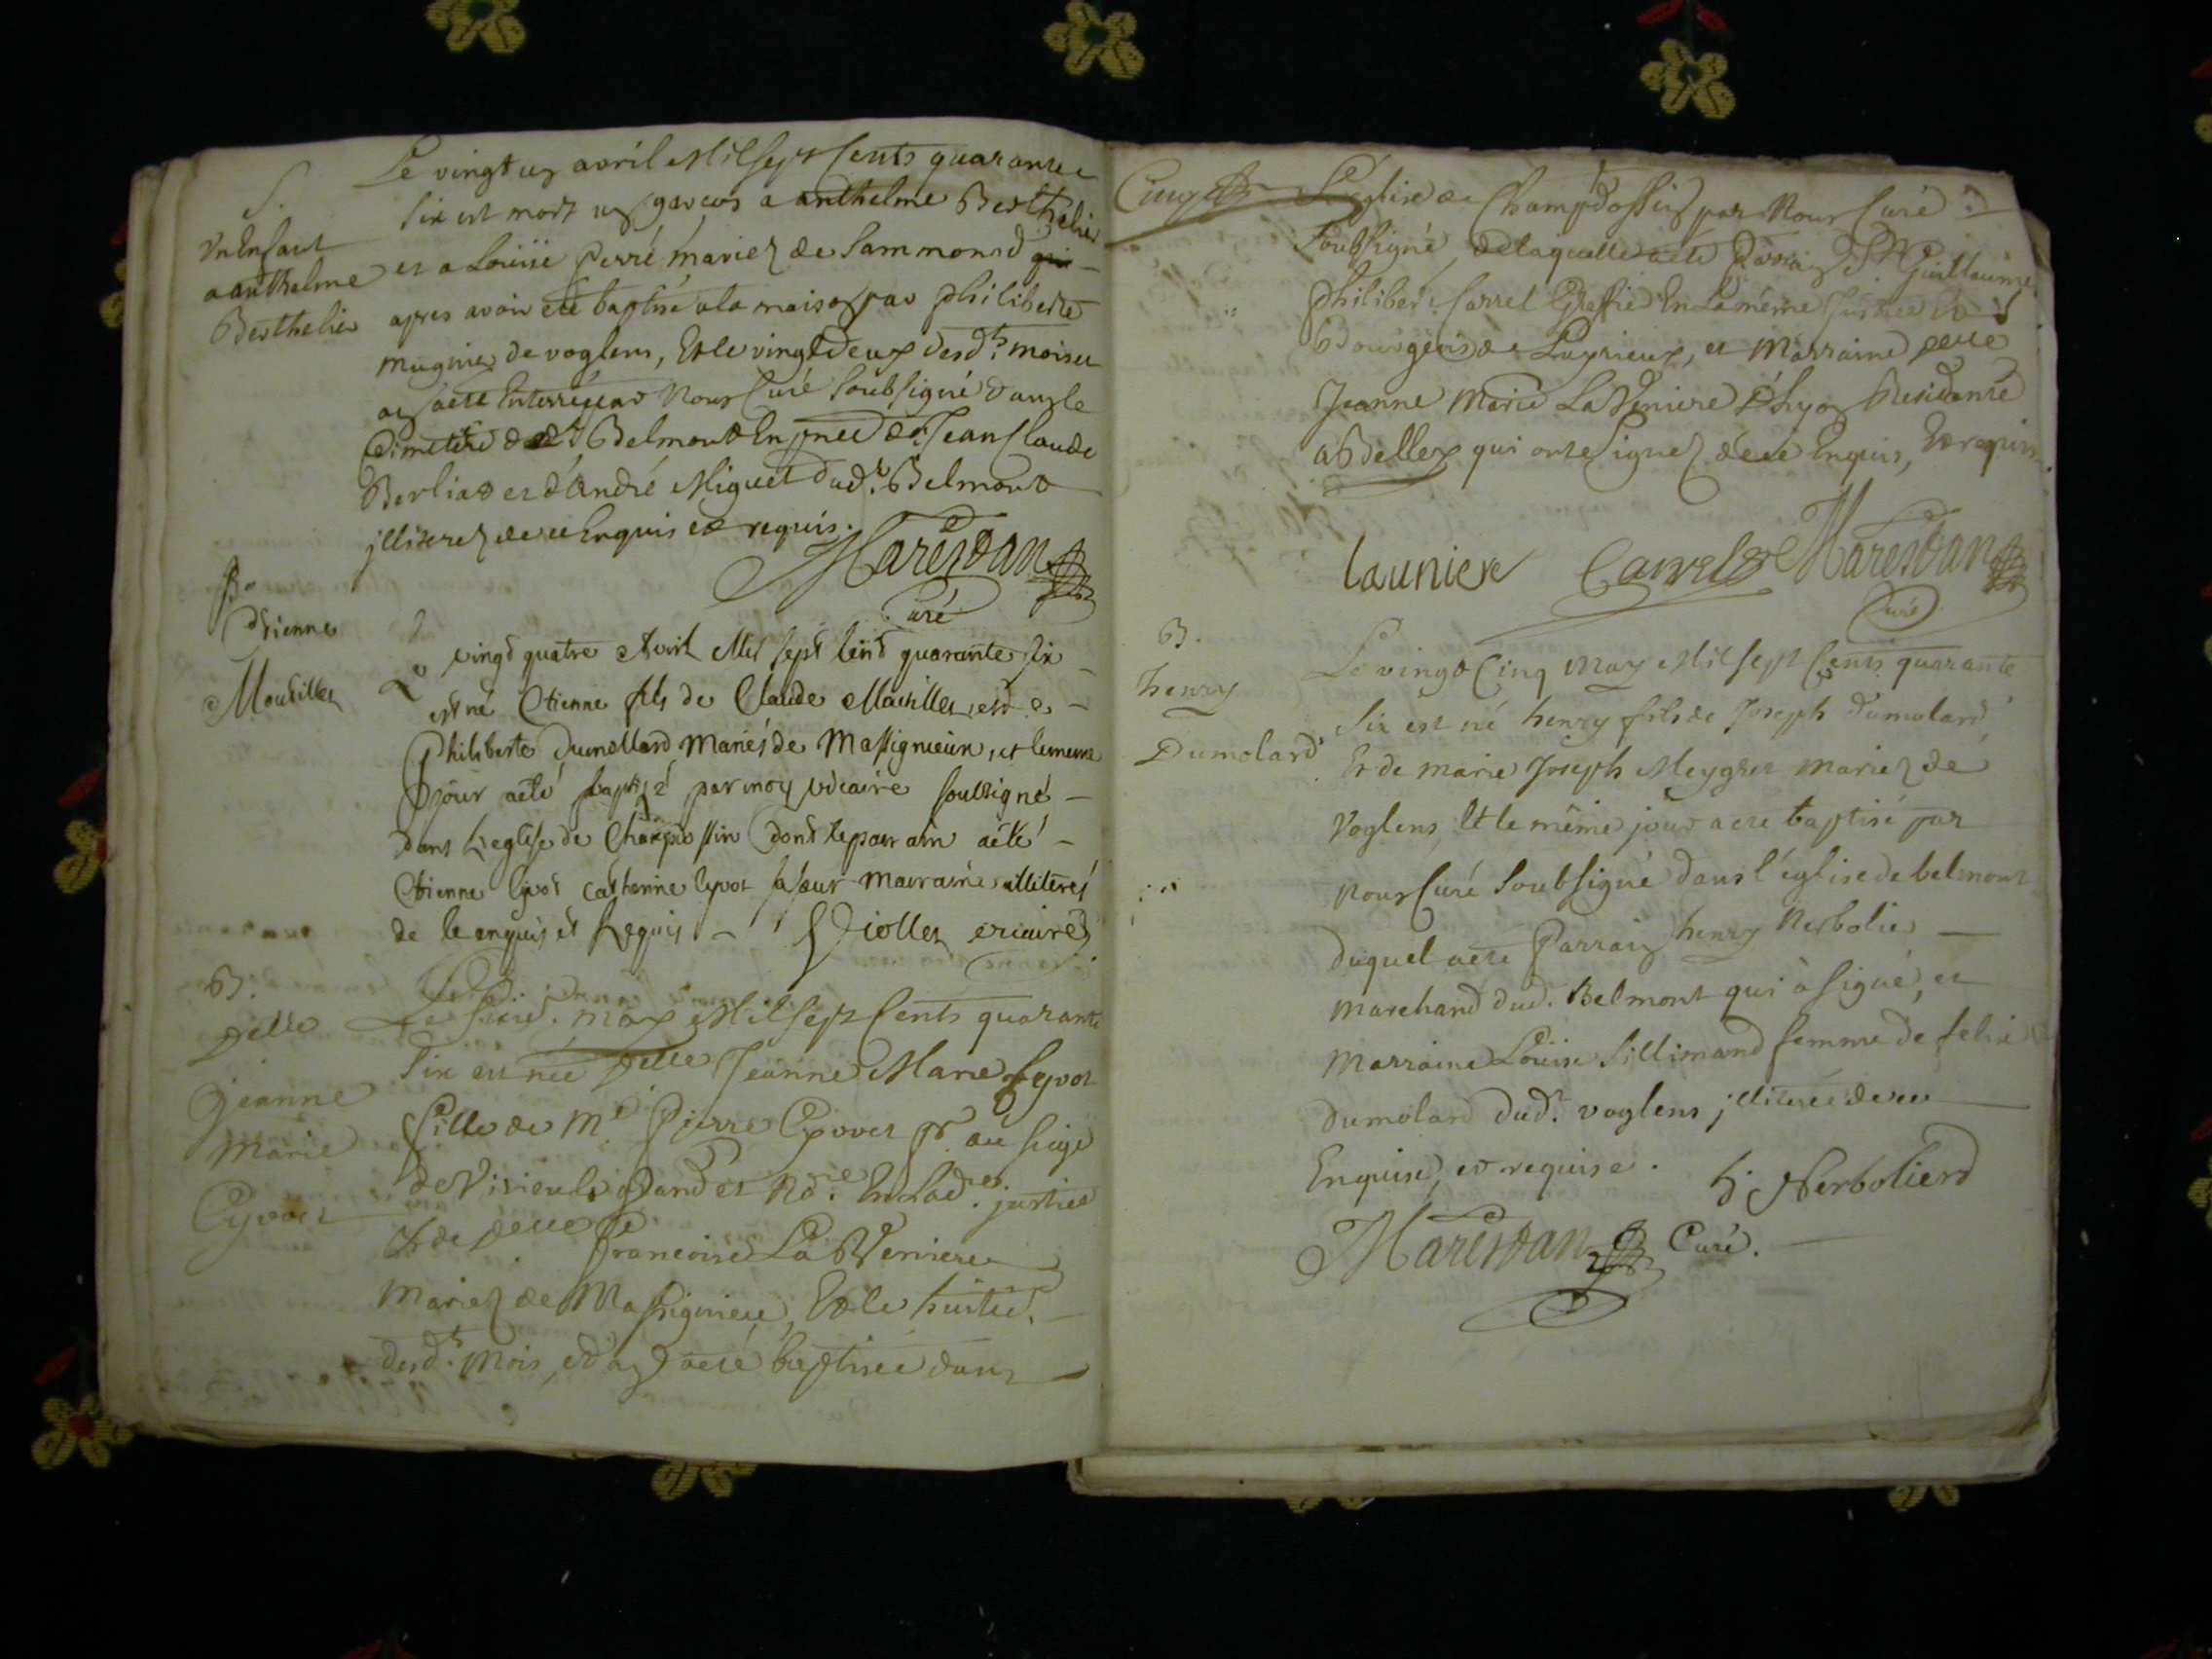 S.
Un Enfant
a anthelme
Berthelier
Le vingt un avril Mil Sept Cents quarante
Six est mort un garcon a anthelme Berthelier
et a Louise Perré mariez de Sammonod
apres avoir eté baptisé a la maison par philiberte
mugnier de voglens, Et le vingt deux desd.ts mois et
an a eté Enterré par Nous Curé Soubsigné dans le
Cimetiere dud.t Belmont En pnce de Jean Claude
Berliat et d'André Miguet dud.t Belmont
jlliterez de ce Enquis et requis.
Marestan
Curé
B.
Etienne
Moutillet
Le vingt quatre Avril Mil sept Cent quarante six
est né Etienne fils de Claude Moutillet et de
Philiberte Dumollard Mariés de Massignieux, et le meme
jour a eté baptisé par moy vicaire soussigné
dans l'eglise de Champdossin dont le parrain a eté
Etienne Cyvot Catherine Cyvot sa sœur marraine illiterés
de ce enquis et Requis - vicaire
B.
Delle
Jeanne
Marie
Cyvoct
Le Sixie. may Mil Sept Cents quarante
Six est née Delle Jeanne Marie Cyvot
fille de Me Pierre Cyvoct pr. au siege
de Virieu le grand et No.re En lad.e justice
Et de Delle Francoise La Verniere
Mariez de Massignieu, Et le huitie.
desd.ts Mois, et an a eté baptisée dans
L'Eglise de Champdossin par Nous Curé
Soubsigné, de laquelle a eté Parrain Sr Guillaume
Philibert Carrel Greffier En La même Justice
Bourgeois de Luyrieux, et Marraine Delle
Jeanne Marie La Verniere Residente
a Belley qui ont Signez de ce Enquis, Et requis.
Launiere Carrel Marestan
Curé
B.
henry
Dumolard
Le vingt Cinq May Mil Sept Cents quarante
Six est né henry fils de Joseph Dumolard
Et de marie Joseph Meygret mariez de
Voglens, Et le même jour a eté baptisé par
Nous Curé Soubsigné dans l'église de belmont
duquel a eté Parrain henry Nerbolier
marchand dud. Belmont qui à signé, et
marraine Louise Sillimand femme de felix
Dumolard dud.t voglens jlliterée de ce
Enquise, et requise.
h. Nerbolierd
Marestan Curé.